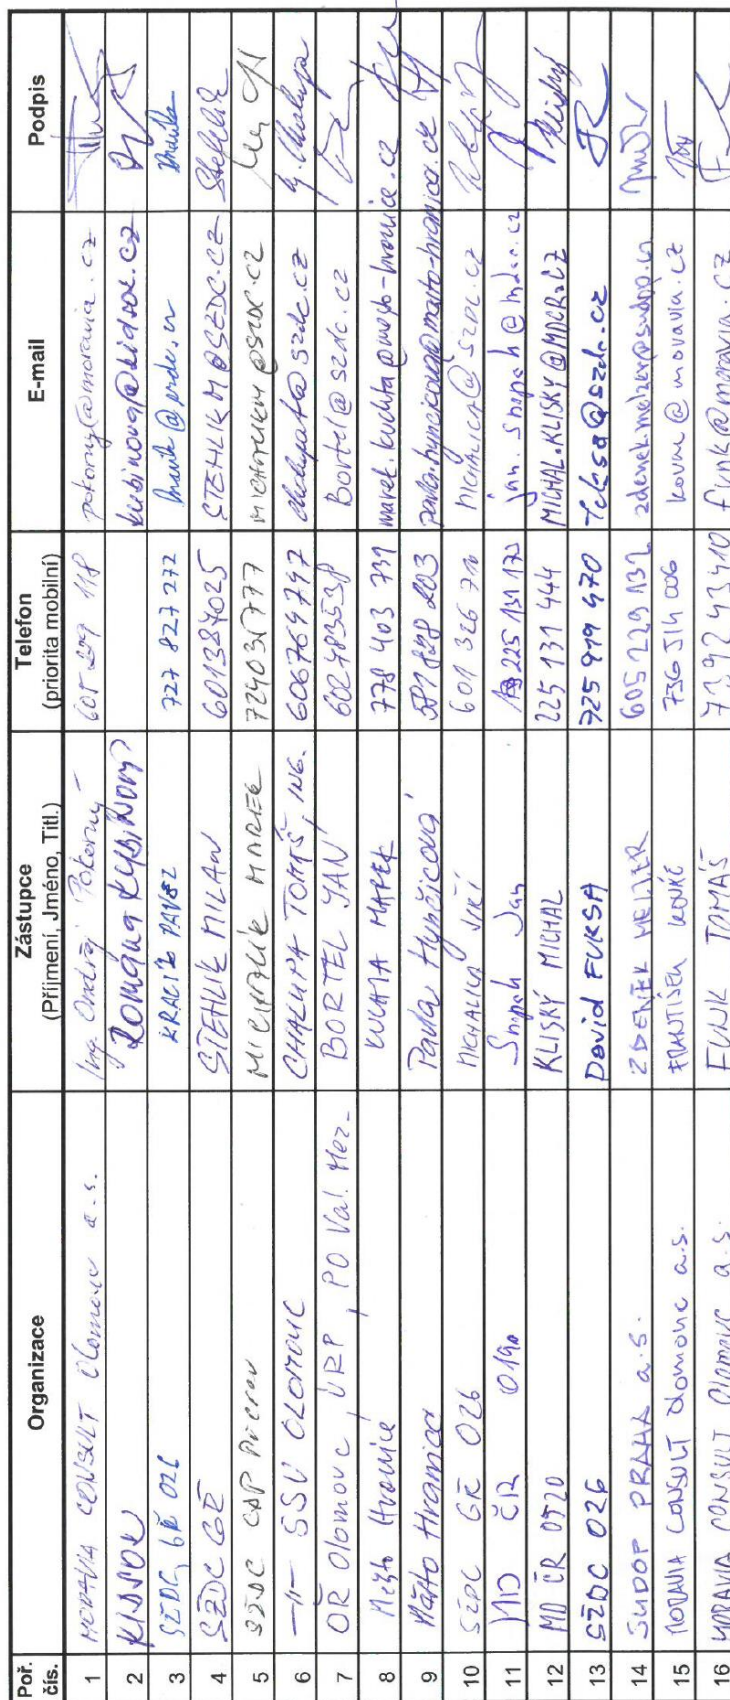 Poř. čís. Organizace Zástupce (Příjmení, Jméno, Titl.) Telefon (priorita mobilní) E-mail Podpis
1 MORAVIA CONSULT Olomouc a.s. Ing. Ondřej Pokorný 118 pokorny@moravia.cz
2 KIDSOK Romana KUBÍNOVÁ kubinova@kidsok.cz
3 SŽDC, GŘ O26 KRAČÍK PAVEL 727 827 272
4 SŽDC GŘ STEHLÍK MILAN 601384025 STEHLIKM@SZDC.CZ
5 SŽDC MAREK @SZDC.CZ
6 -II- SSV OLOMOUC CHALUPA TOMÁŠ, ING. 606764747 @szdc.cz
7 OŘ Olomouc, ÚRP, PO Val. Mez. BORTEL JAN 602783538 Bortel@szdc.cz
8 Město Hranice KUCHTA MAREK 778 403 731 marek.kuchta@mesto-hranice.cz
9 Město Hranice Pavla Hynčicová 581 828 203 pavla.hyncicova@mesto-hranice.cz
10 SŽDC GŘ O26 MICHALICA JIŘÍ 601 326 710 michalica@szdc.cz
11 MD ČR O190 Jan 225 131 172 @mdcr.cz
12 MD ČR O520 KLISKÝ MICHAL 225 131 444 MICHAL.KLISKY@MDCR.CZ
13 SŽDC O26 David FUKSA 725 919 470 @szdc.cz
14 SUDOP PRAHA a.s. ZDENĚK MELZER 605 229 132 zdenek.melzer@sudop.cz
15 MORAVIA CONSULT Olomouc a.s. FRANTIŠEK KOVÁČ 736 514 006 kovac@moravia.cz
16 MORAVIA CONSULT Olomouc a.s. FUNK TOMÁŠ 739243410 funk@moravia.cz